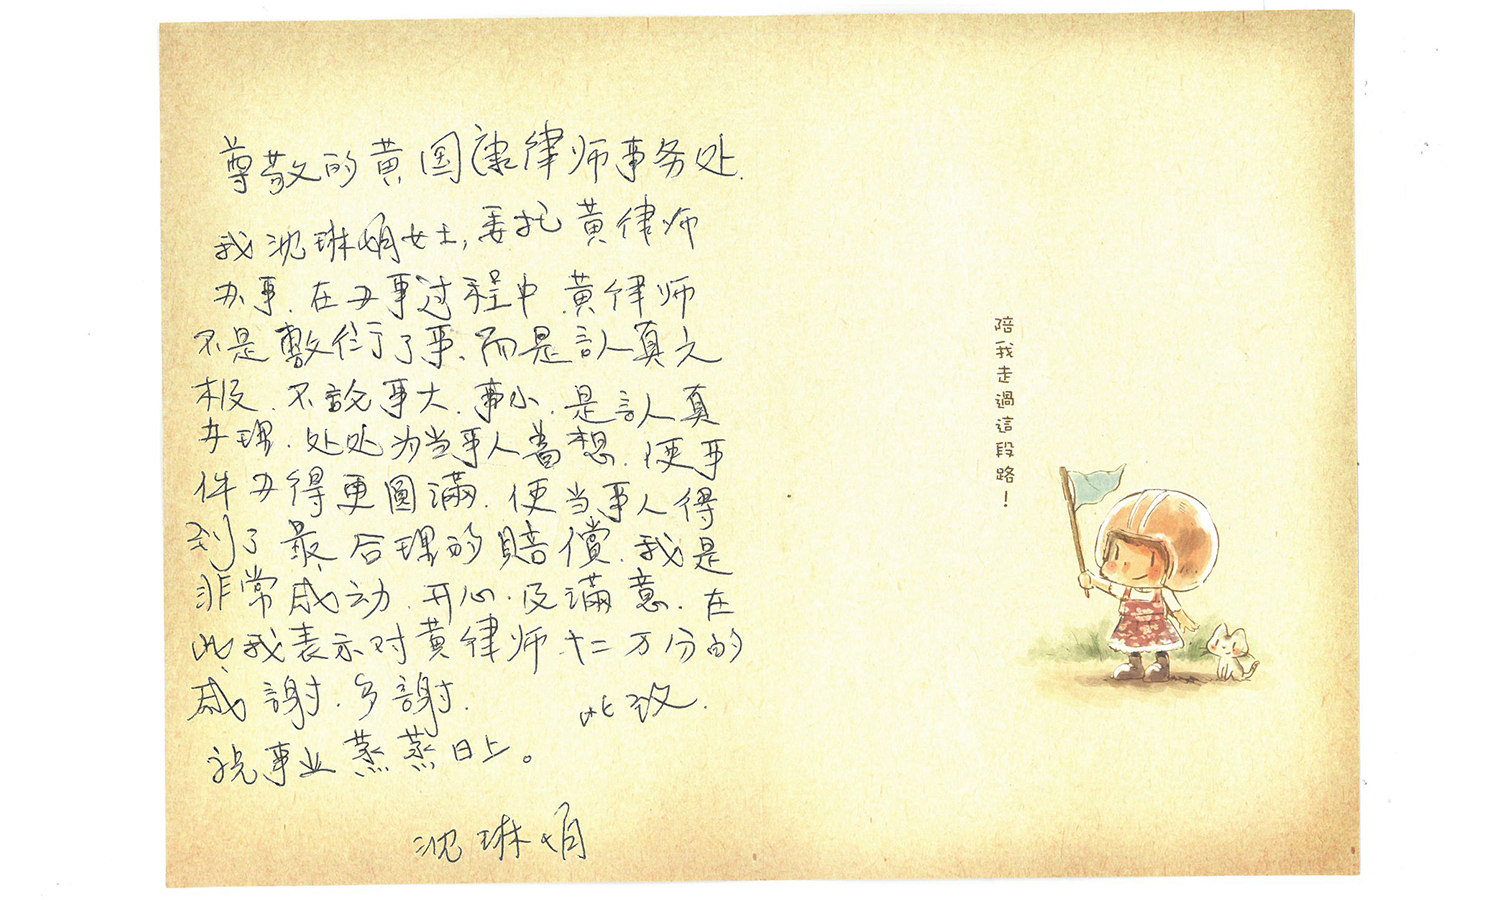 尊敬的黄国康律师事务处.
我沈琳娟女士,委托黄律师
办事.在办事过程中.黄律师
不是敷衍了事.而是認真之
极.不說事大.事小.是認真
办理.处处为当事人着想.使事
件办得更圓滿.使当事人得
到了最合理的賠償.我是
非常感动.开心.及滿意.在
此我表示对黄律师十二万分的
感謝.多謝. 此致.
祝事业蒸蒸日上。
沈琳娟
陪我走過這段路!